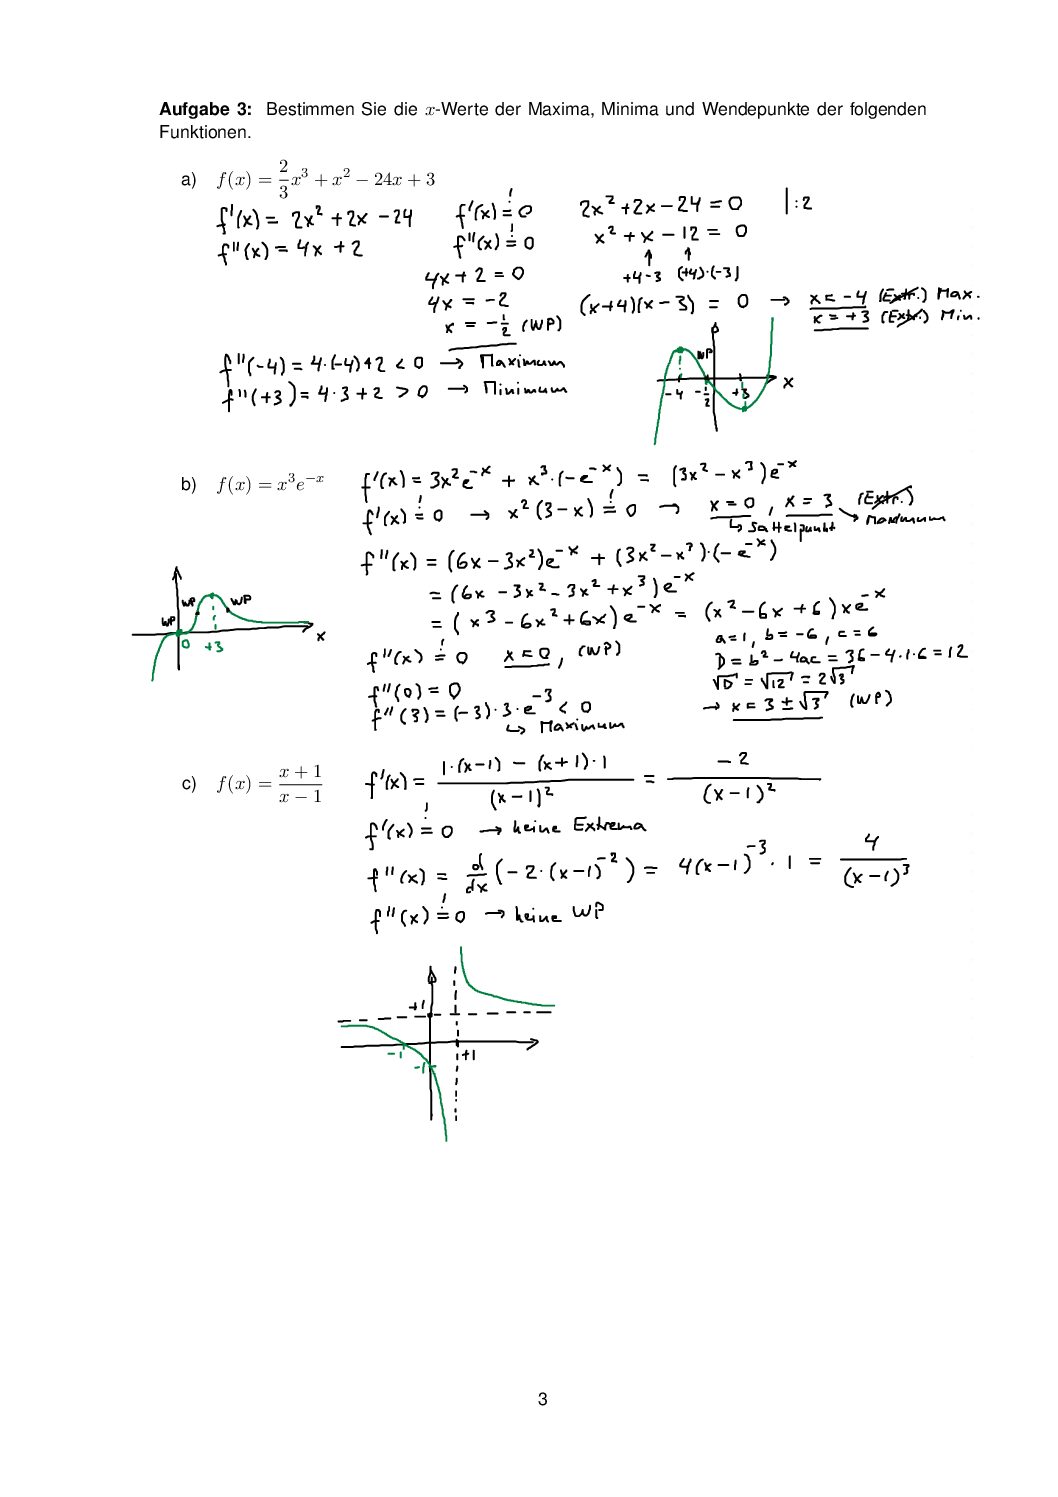 Aufgabe 3: Bestimmen Sie die x-Werte der Maxima, Minima und Wendepunkte der folgenden
Funktionen.
a) f(x) = 2/3 x³ + x² − 24x + 3
f'(x) = 2x² + 2x − 24   f'(x) =! 0   2x² + 2x − 24 = 0   | :2
f''(x) = 4x + 2   f''(x) =! 0   x² + x − 12 = 0
↑ ↑
4x + 2 = 0   +4−3   (+4)·(−3)
4x = −2   (x+4)(x−3) = 0 → x = −4 (Extr.) Max.
x = −1/2 (WP)   x = +3 (Extr.) Min.
f''(−4) = 4·(−4)+2 < 0 → Maximum
f''(+3) = 4·3 + 2 > 0 → Minimum
WP
−4   −1/2   +3   x
b) f(x) = x³e⁻ˣ   f'(x) = 3x²e⁻ˣ + x³·(−e⁻ˣ) = (3x² − x³)e⁻ˣ
f'(x) =! 0 → x²(3−x) =! 0 → x = 0, x = 3 (Extr.)
↳ Sattelpunkt   → Maximum
f''(x) = (6x − 3x²)e⁻ˣ + (3x² − x³)·(−e⁻ˣ)
= (6x − 3x² − 3x² + x³)e⁻ˣ
= (x³ − 6x² + 6x)e⁻ˣ = (x² − 6x + 6)xe⁻ˣ
a=1, b=−6, c=6
f''(x) =! 0   x = 0, (WP)   D = b² − 4ac = 36 − 4·1·6 = 12
√D = √12 = 2√3
f''(0) = 0   → x = 3 ± √3 (WP)
f''(3) = (−3)·3·e⁻³ < 0
↳ Maximum
WP   WP   WP
0   +3   x
c) f(x) = (x + 1)/(x − 1)   f'(x) = (1·(x−1) − (x+1)·1)/(x−1)² = −2/(x−1)²
f'(x) =! 0 → keine Extrema
f''(x) = d/dx (−2·(x−1)⁻²) = 4(x−1)⁻³·1 = 4/(x−1)³
f''(x) =! 0 → keine WP
+1
−1   +1
−1
3